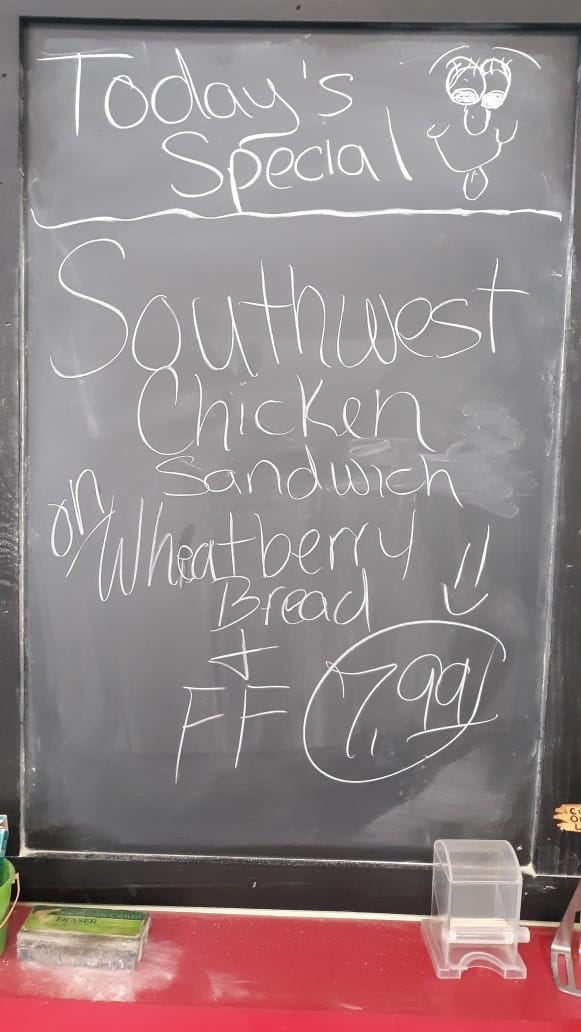 Today's
Special
Southwest
Chicken
Sandwich
on Wheatberry
Bread
+
FF 7.99
ERASER